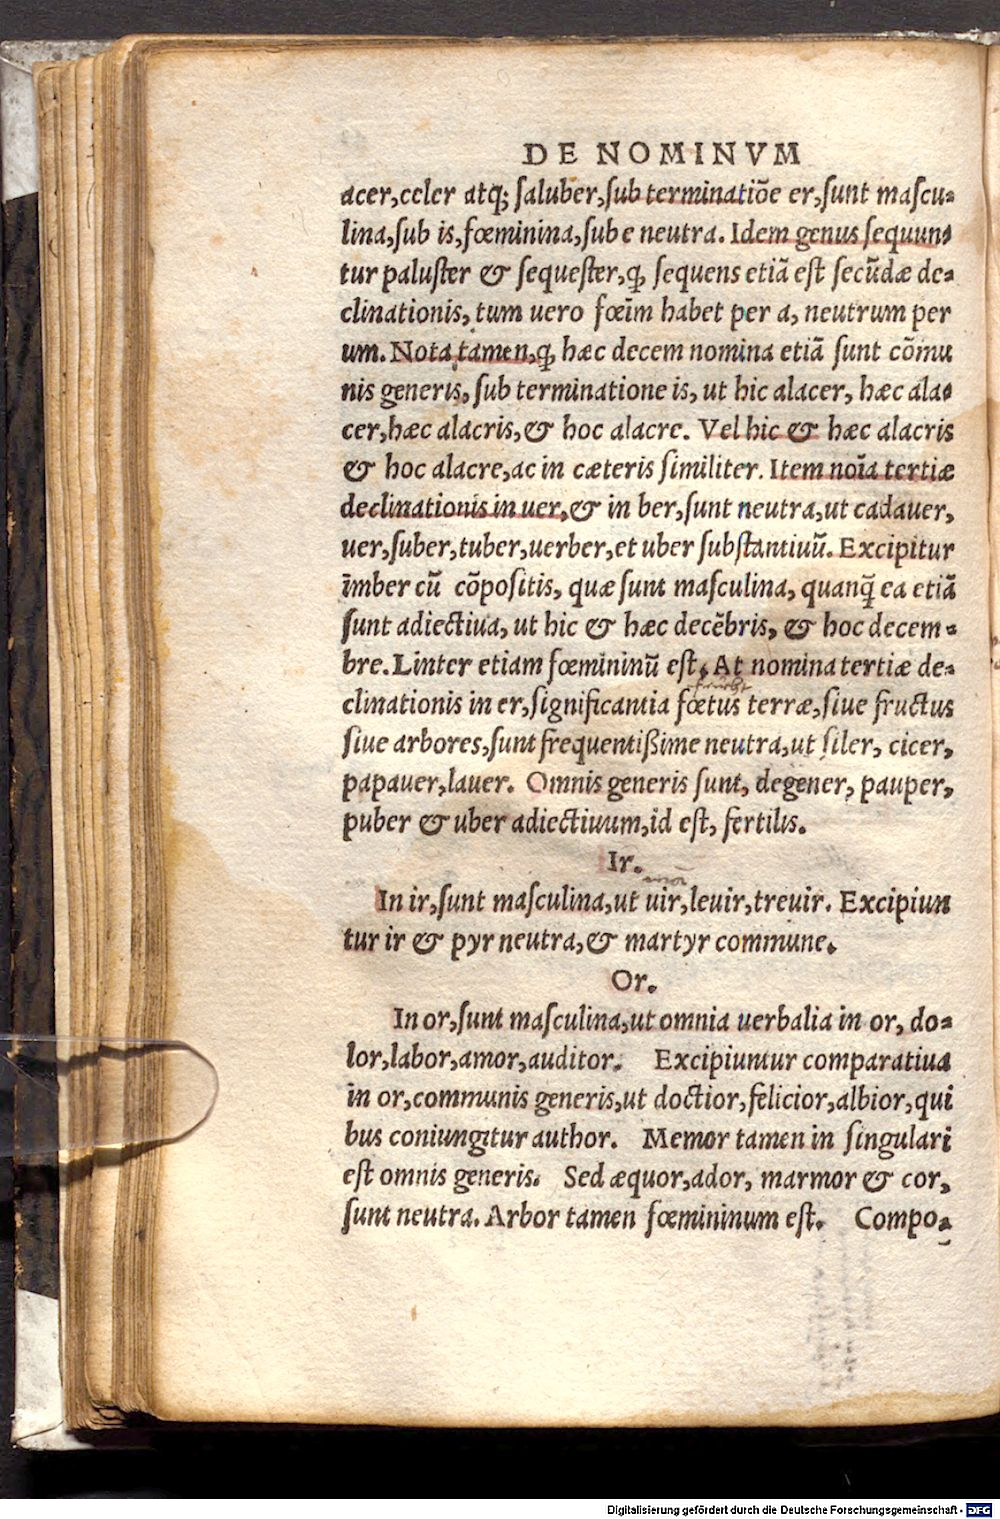 DE NOMINVM
acer,celer atq; ſaluber,ſub terminatiõe er,ſunt maſcu-
lina,ſub is,fœminina,ſub e neutra. Idem genus ſequun-
tur paluſter & ſequeſter,ꝙ ſequens etiã eſt ſecũdæ de-
clinationis, tum uero fœĩm habet per a, neutrum per
um. Nota tamen,ꝙ hæc decem nomina etiã ſunt cõmu
nis generis, ſub terminatione is, ut hic alacer, hæc ala-
cer,hæc alacris,& hoc alacre. Vel hic & hæc alacris
& hoc alacre,ac in cæteris ſimiliter. Item noĩa tertiæ
declinationis in uer,& in ber,ſunt neutra,ut cadauer,
uer,ſuber,tuber,uerber,et uber ſubſtantiuũ. Excipitur
ĩmber cũ cõpoſitis, quæ ſunt maſculina, quanq̃ ea etiã
ſunt adiectiua, ut hic & hæc decẽbris, & hoc decem-
bre. Linter etiam fœmininũ eſt. At nomina tertiæ de-
clinationis in er,ſignificantia fœtus terræ,ſiue fructus
ſiue arbores,ſunt frequentißime neutra,ut ſiler, cicer,
papauer,lauer. Omnis generis ſunt, degener, pauper,
puber & uber adiectiuum,id eſt, fertilis.
Ir.
In ir,ſunt maſculina,ut uir,leuir,treuir. Excipiun
tur ir & pyr neutra,& martyr commune.
Or.
In or,ſunt maſculina,ut omnia uerbalia in or, do-
lor,labor,amor,auditor. Excipiuntur comparatiua
in or,communis generis,ut doctior,felicior,albior,qui
bus coniungitur author. Memor tamen in ſingulari
eſt omnis generis. Sed æquor,ador, marmor & cor,
ſunt neutra. Arbor tamen fœmininum eſt. Compo-
Digitalisierung gefördert durch die Deutsche Forschungsgemeinschaft - DFG